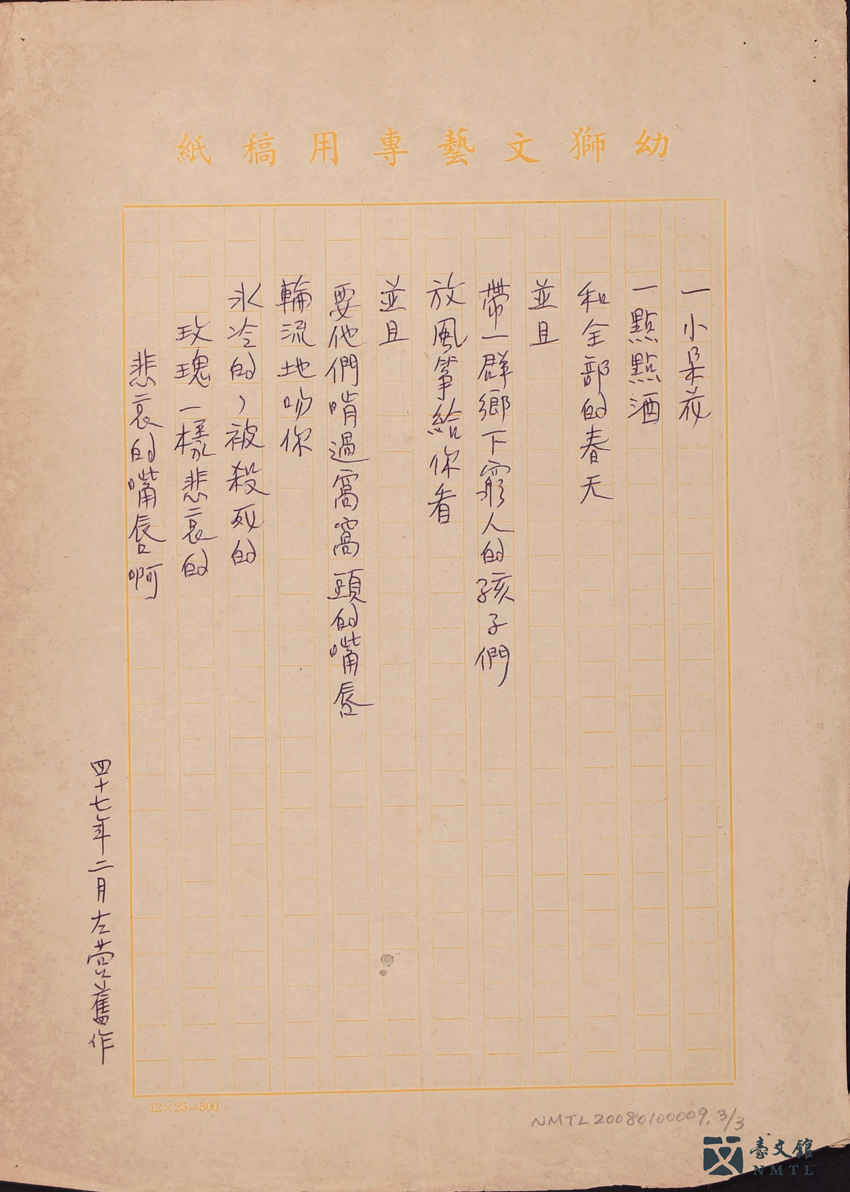 幼獅文藝專用稿紙
一小朵花
一點點酒
和全部的春天
並且
帶一群鄉下窮人的孩子們
放風箏給你看
並且
要他們啃過窩窩頭的嘴唇
輪流地吻你
氷冷的，被殺死的
玫瑰一樣悲哀的
悲哀的嘴唇啊
四十七年二月左營舊作
12×25=300
NMTL20080100009, 3/3
臺文館
NMTL